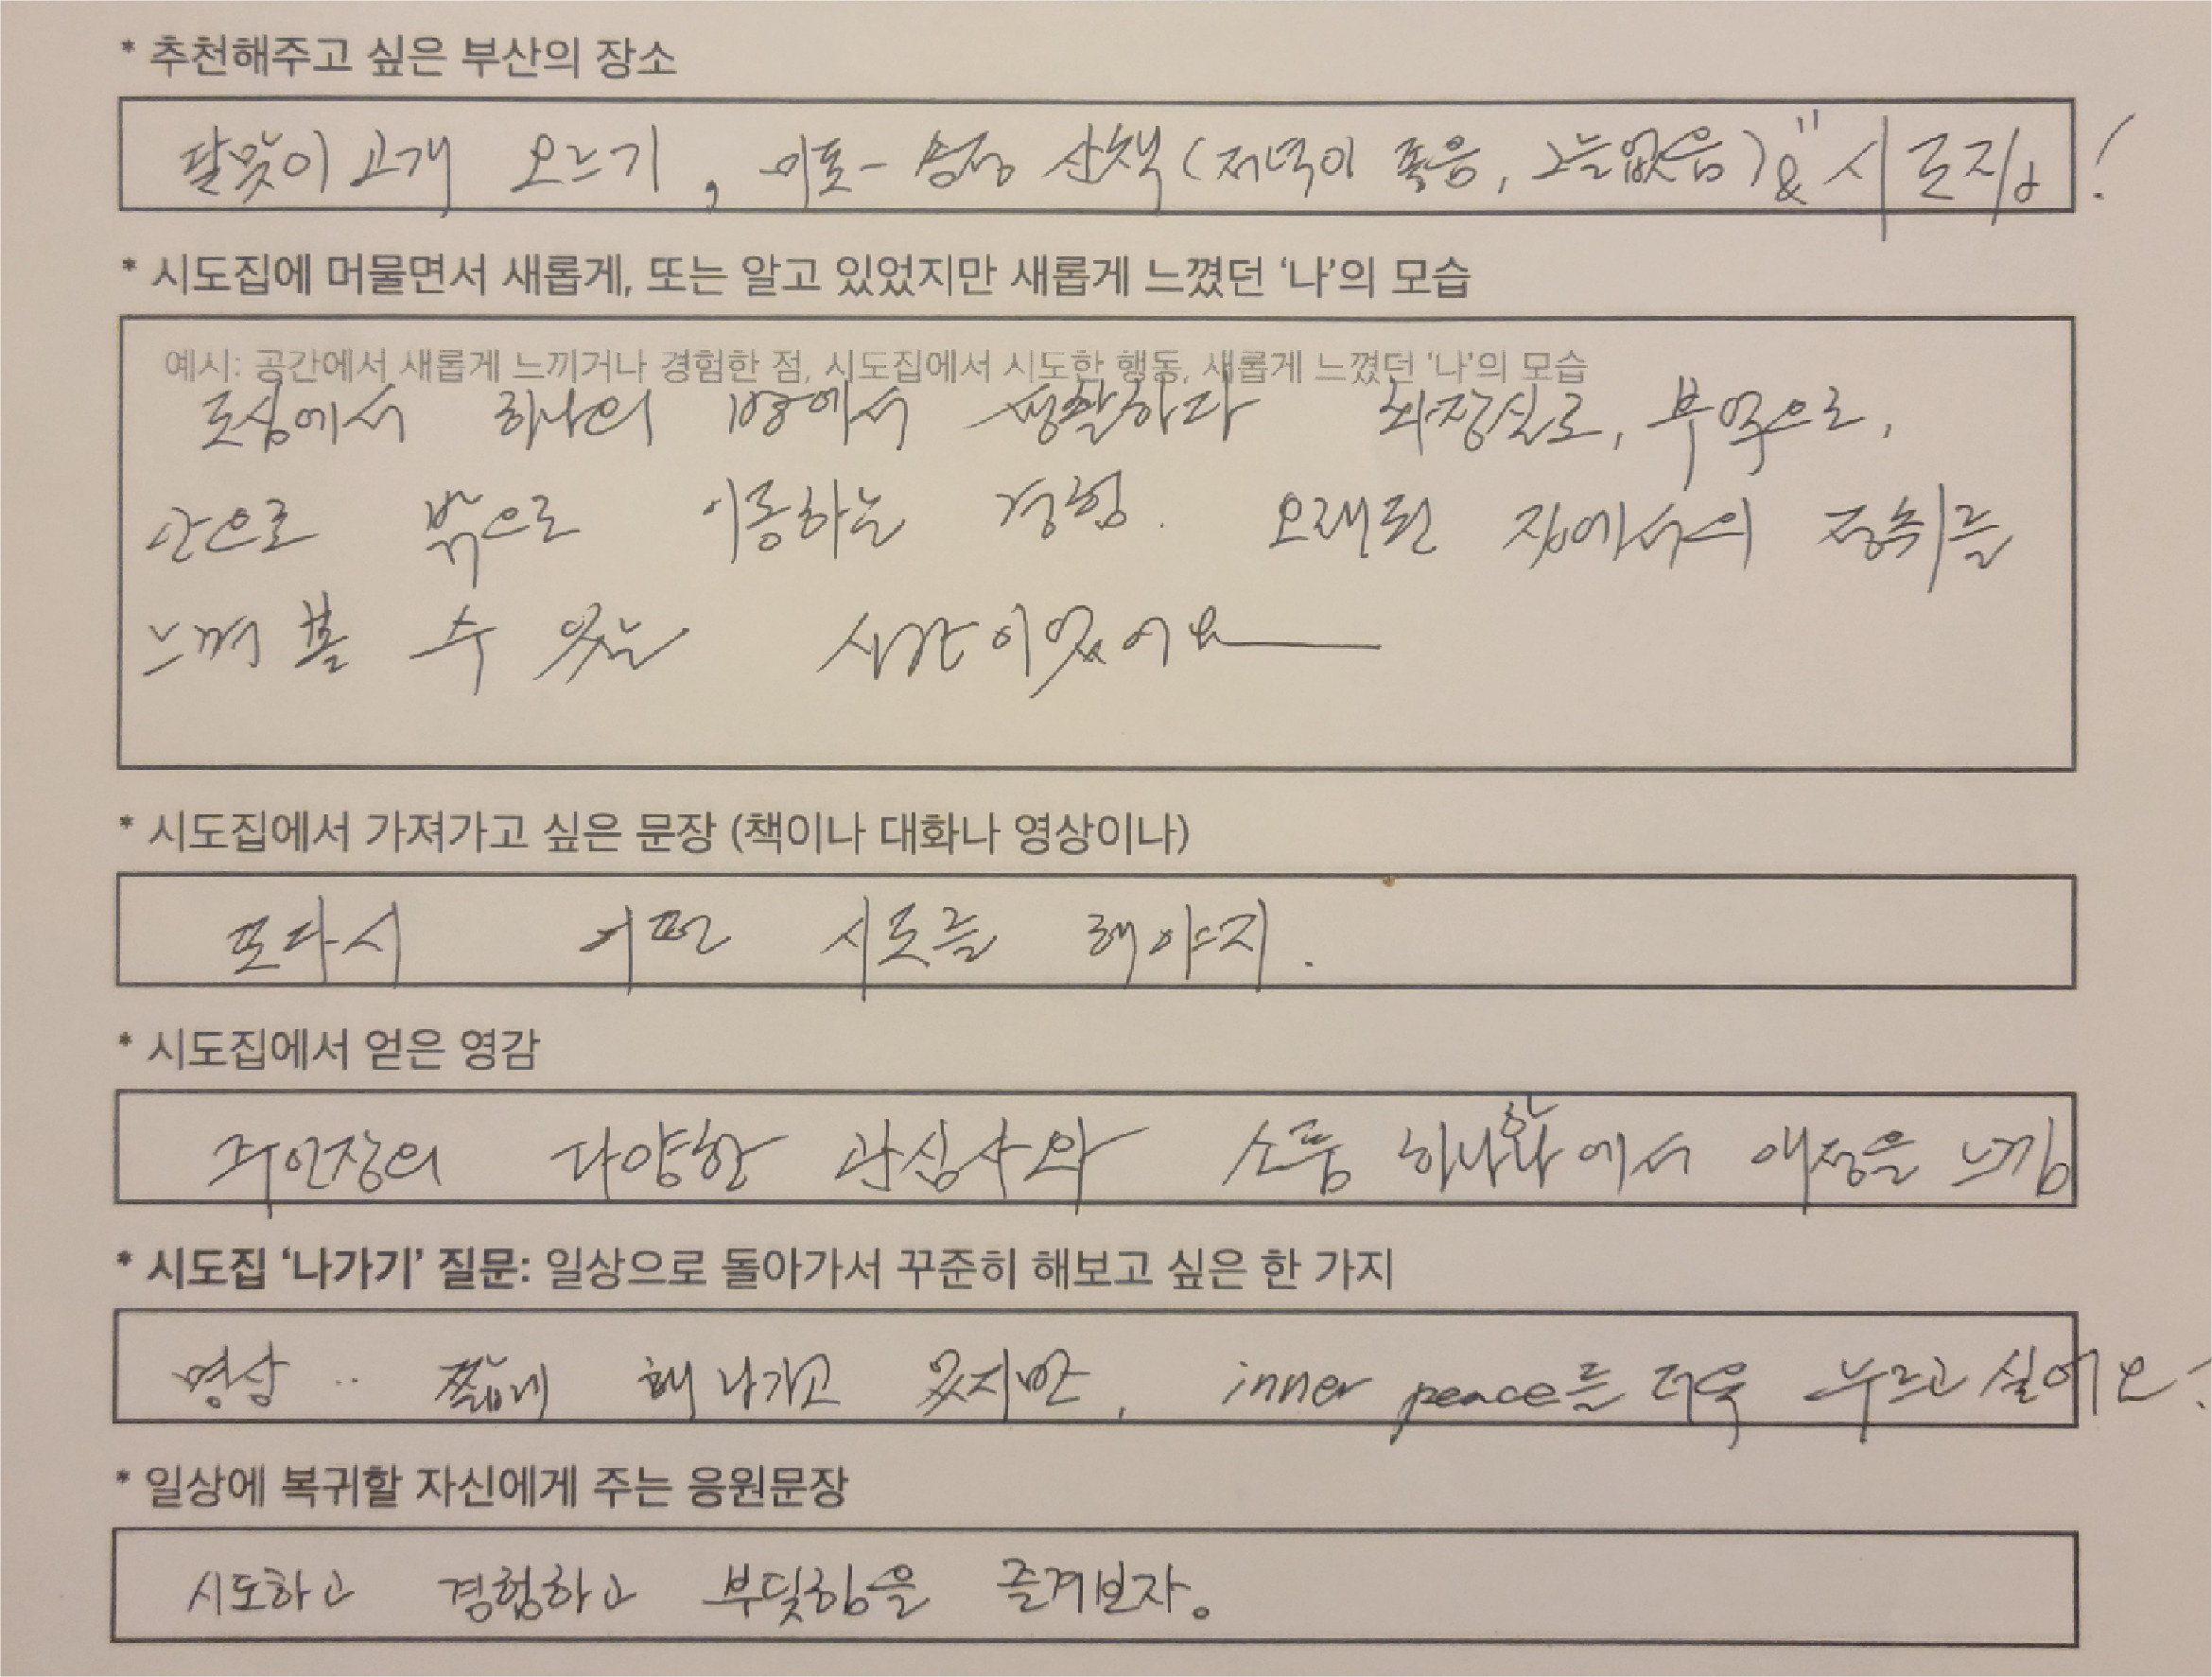 * 추천해주고 싶은 부산의 장소
달맞이고개 오르기, 미포-송정 산책(저녁이 좋음, 그늘없음) & "시도집!
* 시도집에 머물면서 새롭게, 또는 알고 있었지만 새롭게 느꼈던 ‘나’의 모습
예시: 공간에서 새롭게 느끼거나 경험한 점, 시도집에서 시도한 행동, 새롭게 느꼈던 ‘나’의 모습
도심에서 하나의 방에서 생활하다 화장실로, 부엌으로,
안으로 밖으로 이동하는 경험. 오래된 집에서의 정취를
느껴 볼 수 있는 시간이었어요
* 시도집에서 가져가고 싶은 문장 (책이나 대화나 영상이나)
또다시 어떤 시도를 해야지.
* 시도집에서 얻은 영감
주인장의 다양한 관심사와 소품 하나하나에서 애정을 느낌
* 시도집 ‘나가기’ 질문: 일상으로 돌아가서 꾸준히 해보고 싶은 한 가지
명상.. 짧게 해나가고 있지만, inner peace를 더욱 누르고 싶어요!
* 일상에 복귀할 자신에게 주는 응원문장
시도하고 경험하고 부딪힘을 즐겨보자.